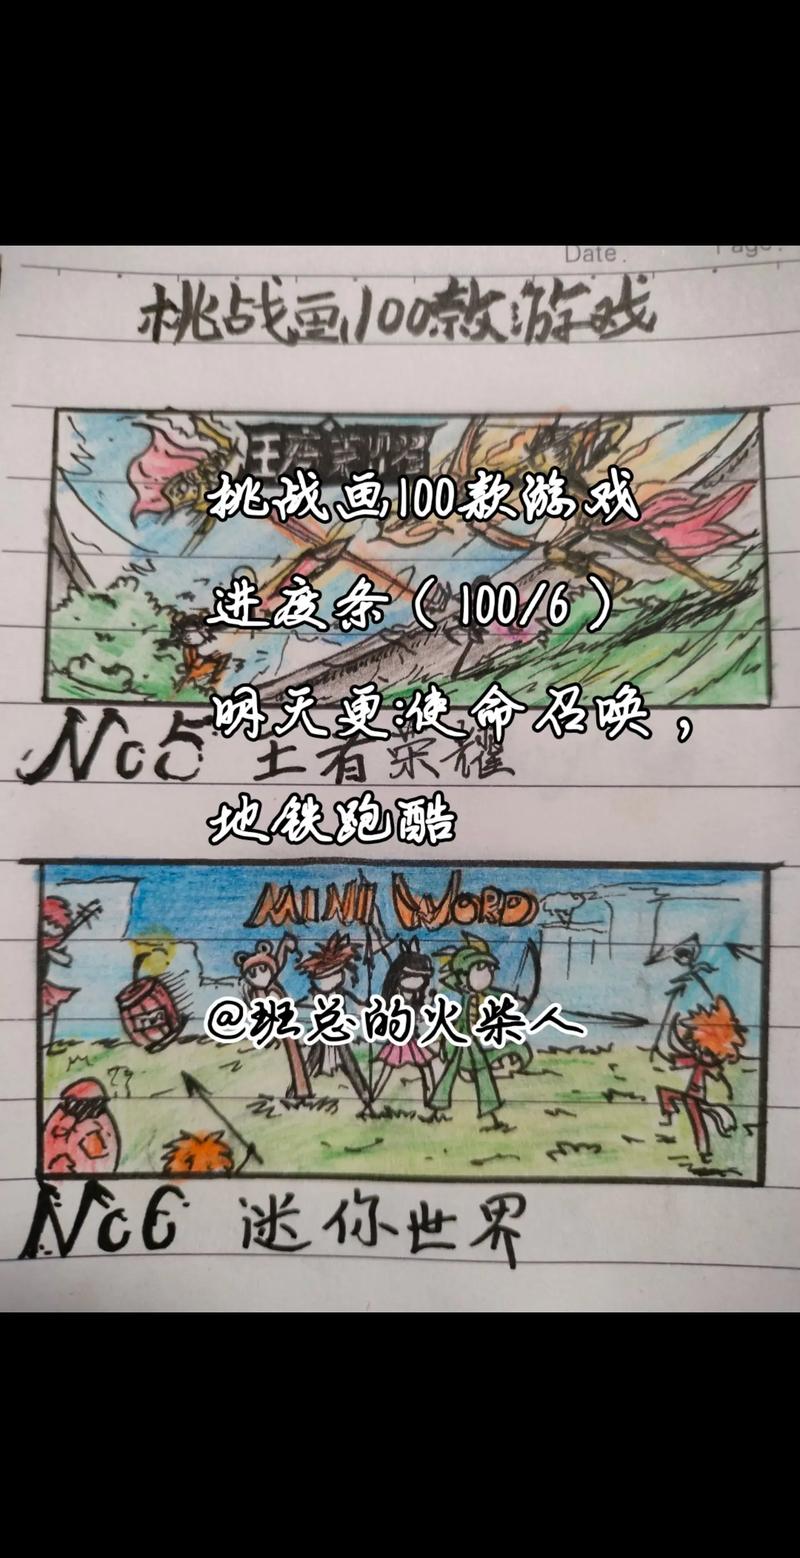 Date.
Page.
挑战画100款游戏
王者荣耀
挑战画100款游戏
进度条（100/6）
明天更:使命召唤，
地铁跑酷
No5 王者荣耀
MINI WORD
@班总的火柴人
No6 迷你世界